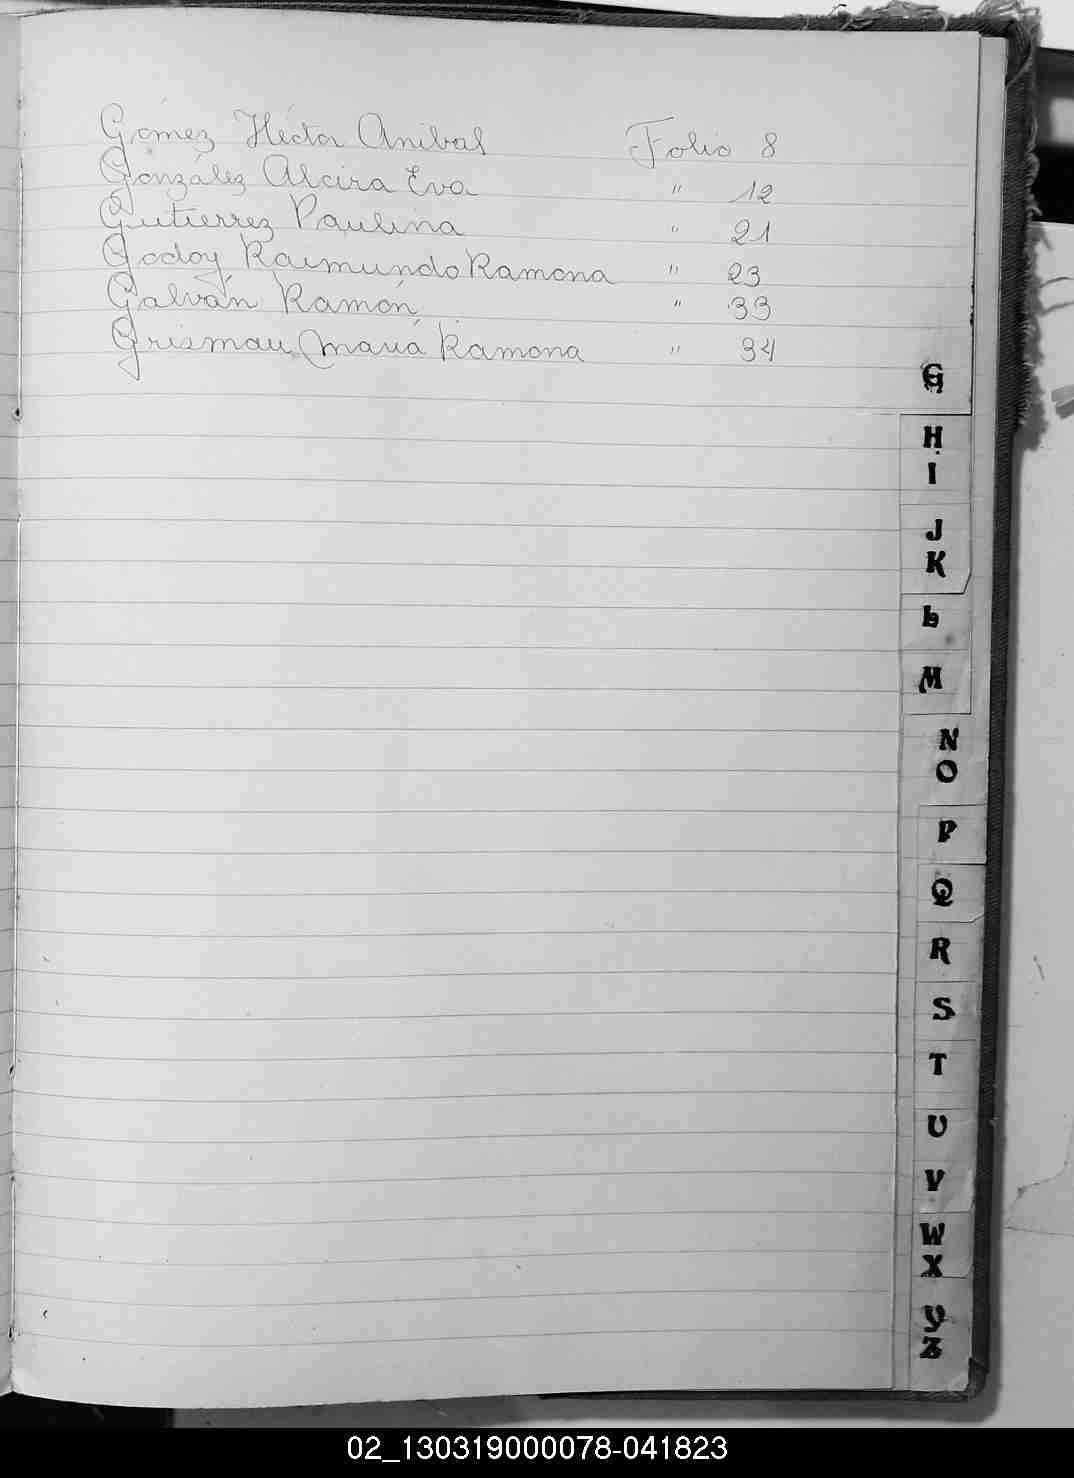 Gómez Héctor Anibal Folio 8
González Alcira Eva " 12
Gutierrez Paulina " 21
Godoy Raimundo Ramona " 23
Galván Ramón " 33
Grismau María Ramona " 34
G
H
I
J
K
L
M
N
O
P
Q
R
S
T
U
V
W
X
Y
Z
02_130319000078-041823